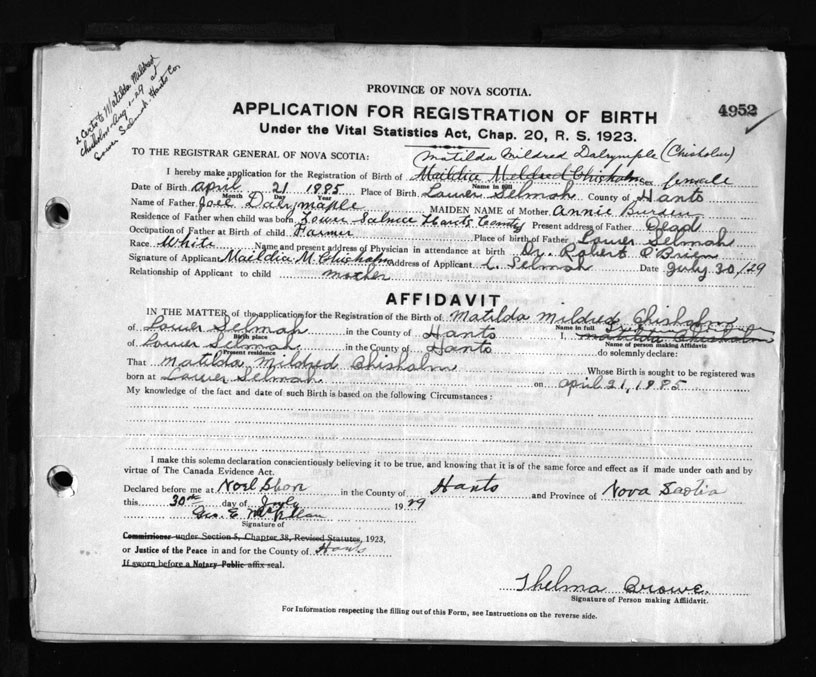 2 Certs to Matilda Mildred
Chisholm Aug 1-29 at
Lower Selmah. Hants Co.
PROVINCE OF NOVA SCOTIA.
APPLICATION FOR REGISTRATION OF BIRTH
4952
Under the Vital Statistics Act, Chap. 20, R. S. 1923.
TO THE REGISTRAR GENERAL OF NOVA SCOTIA:
Matilda Mildred Dalrymple (Chisholm)
I hereby make application for the Registration of Birth of Maildia Meldred Chisholm Sex female
Name in full
Date of Birth April 21 1885 Place of Birth Lower Selmah County of Hants
Month Day Year
Name of Father Joel Dalrymaple MAIDEN NAME of Mother Annie Burden
Residence of Father when child was born Lower Salmee Hants County Present address of Father Dead
Occupation of Father at Birth of child Farmer Place of birth of Father Lower Selmah
Race White Name and present address of Physician in attendance at birth Dr. Robert O'Brien
Signature of Applicant Maildia M. Chisholm Address of Applicant L. Selmah Date July 30/29
Relationship of Applicant to child mother
AFFIDAVIT
IN THE MATTER of the application for the Registration of the Birth of Matilda Mildred Chisholm
Name in full
of Lower Selmah in the County of Hants I, Matilda Chisholm
Birth place
Name of person making Affidavit
of Lower Selmah in the County of Hants do solemnly declare:
Present residence
That Matilda Mildred Chisholm Whose Birth is sought to be registered was
born at Lower Selmah on April 21, 1885
My knowledge of the fact and date of such Birth is based on the following Circumstances:
I make this solemn declaration conscientiously believing it to be true, and knowing that it is of the same force and effect as if made under oath and by
virtue of The Canada Evidence Act.
Declared before me at Noel Shore in the County of Hants and Province of Nova Scotia
this 30th day of July 1929
Geo. E.
Signature of
Commissioner under Section 5, Chapter 38, Revised Statutes, 1923,
or Justice of the Peace in and for the County of Hants
If sworn before a Notary Public affix seal.
Thelma Crowe.
Signature of Person making Affidavit.
For Information respecting the filling out of this Form, see Instructions on the reverse side.